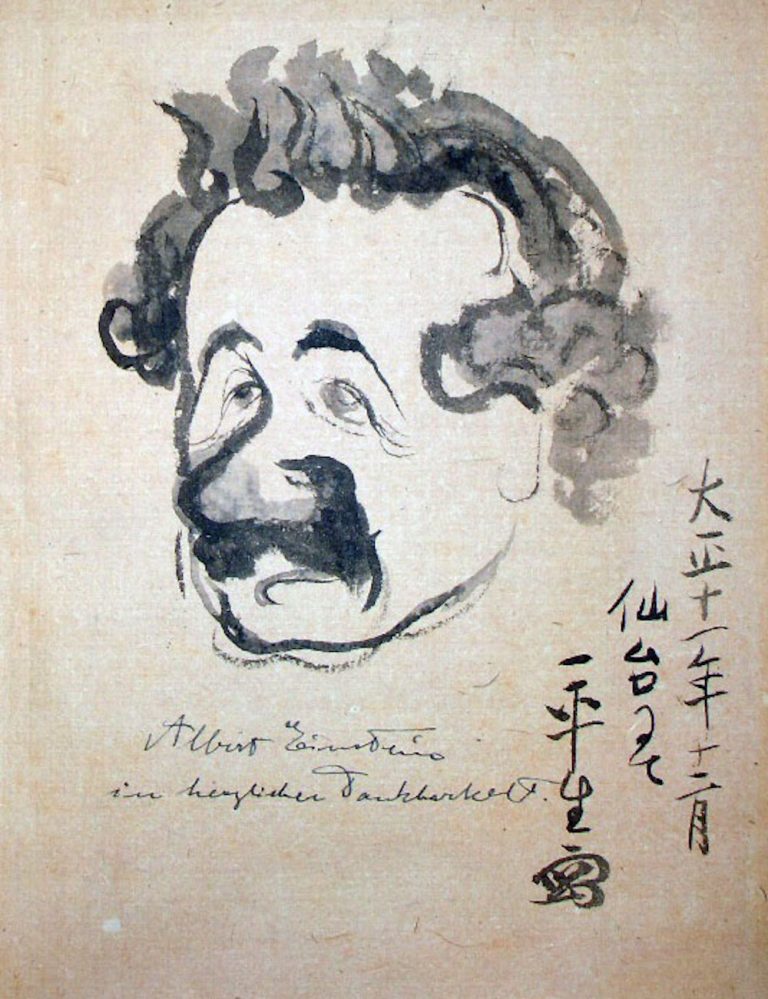 大正十一年十二月
仙台にて
一平生寫
Albert Einstein
in herzlicher Dankbarkeit.